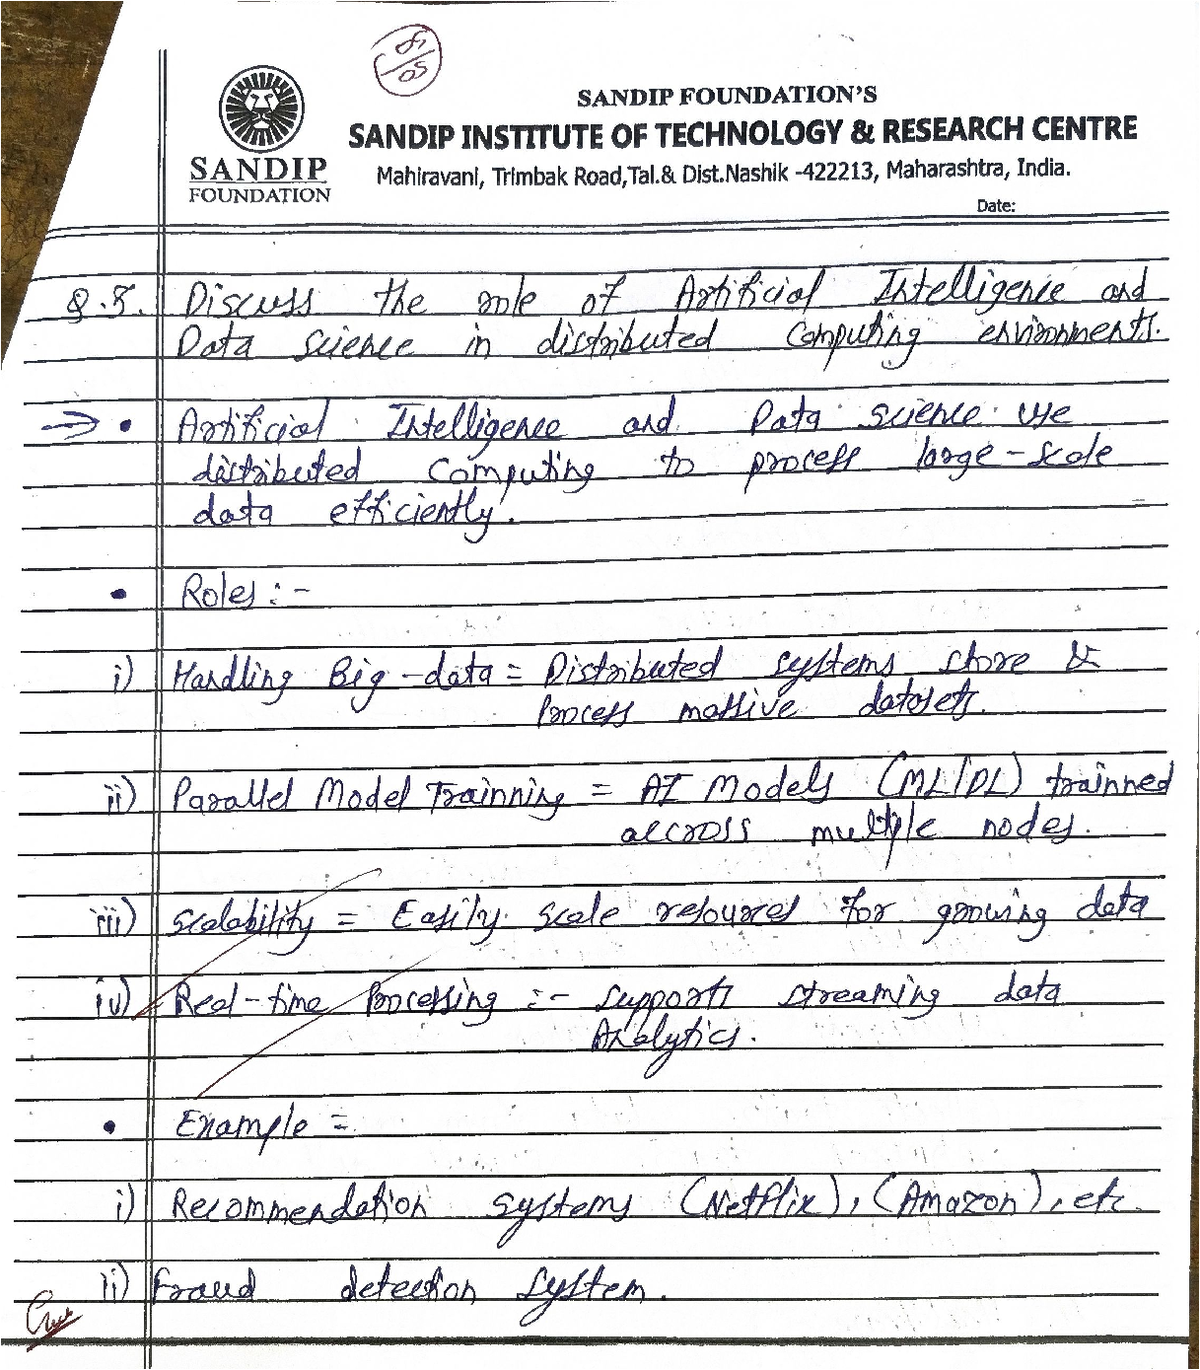 SANDIP FOUNDATION'S
SANDIP INSTITUTE OF TECHNOLOGY & RESEARCH CENTRE
Mahiravani, Trimbak Road,Tal.& Dist.Nashik -422213, Maharashtra, India.
SANDIP
FOUNDATION
Date:
Discuss the role of Artificial Intelligence and
Data science in distributed Computing environments.
→ • Artificial Intelligence and Data science use
distributed Computing to process large-scale
data efficiently.
• Roles :-
i) Handling Big-data = Distributed systems store &
Process massive datasets.
ii) Parallel Model Trainning = AI Models (ML/DL) trainned
accross multiple nodes.
iii) Scalability = Easily scale resources for growing data
iv) Real-time Processing :- Supports streaming data
Analytics.
• Example =
i) Recommendation systems (Netflix), (Amazon), etc.
ii) Fraud detection system.